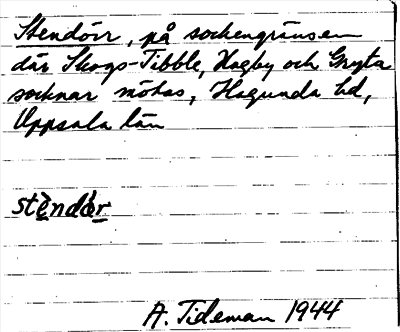 Stendörr, på sockengränsen
där Skogs-Tibble, Hagby och Gryta
socknar mötas, Hagunda hd,
Uppsala län
stèndör
A. Tideman 1944